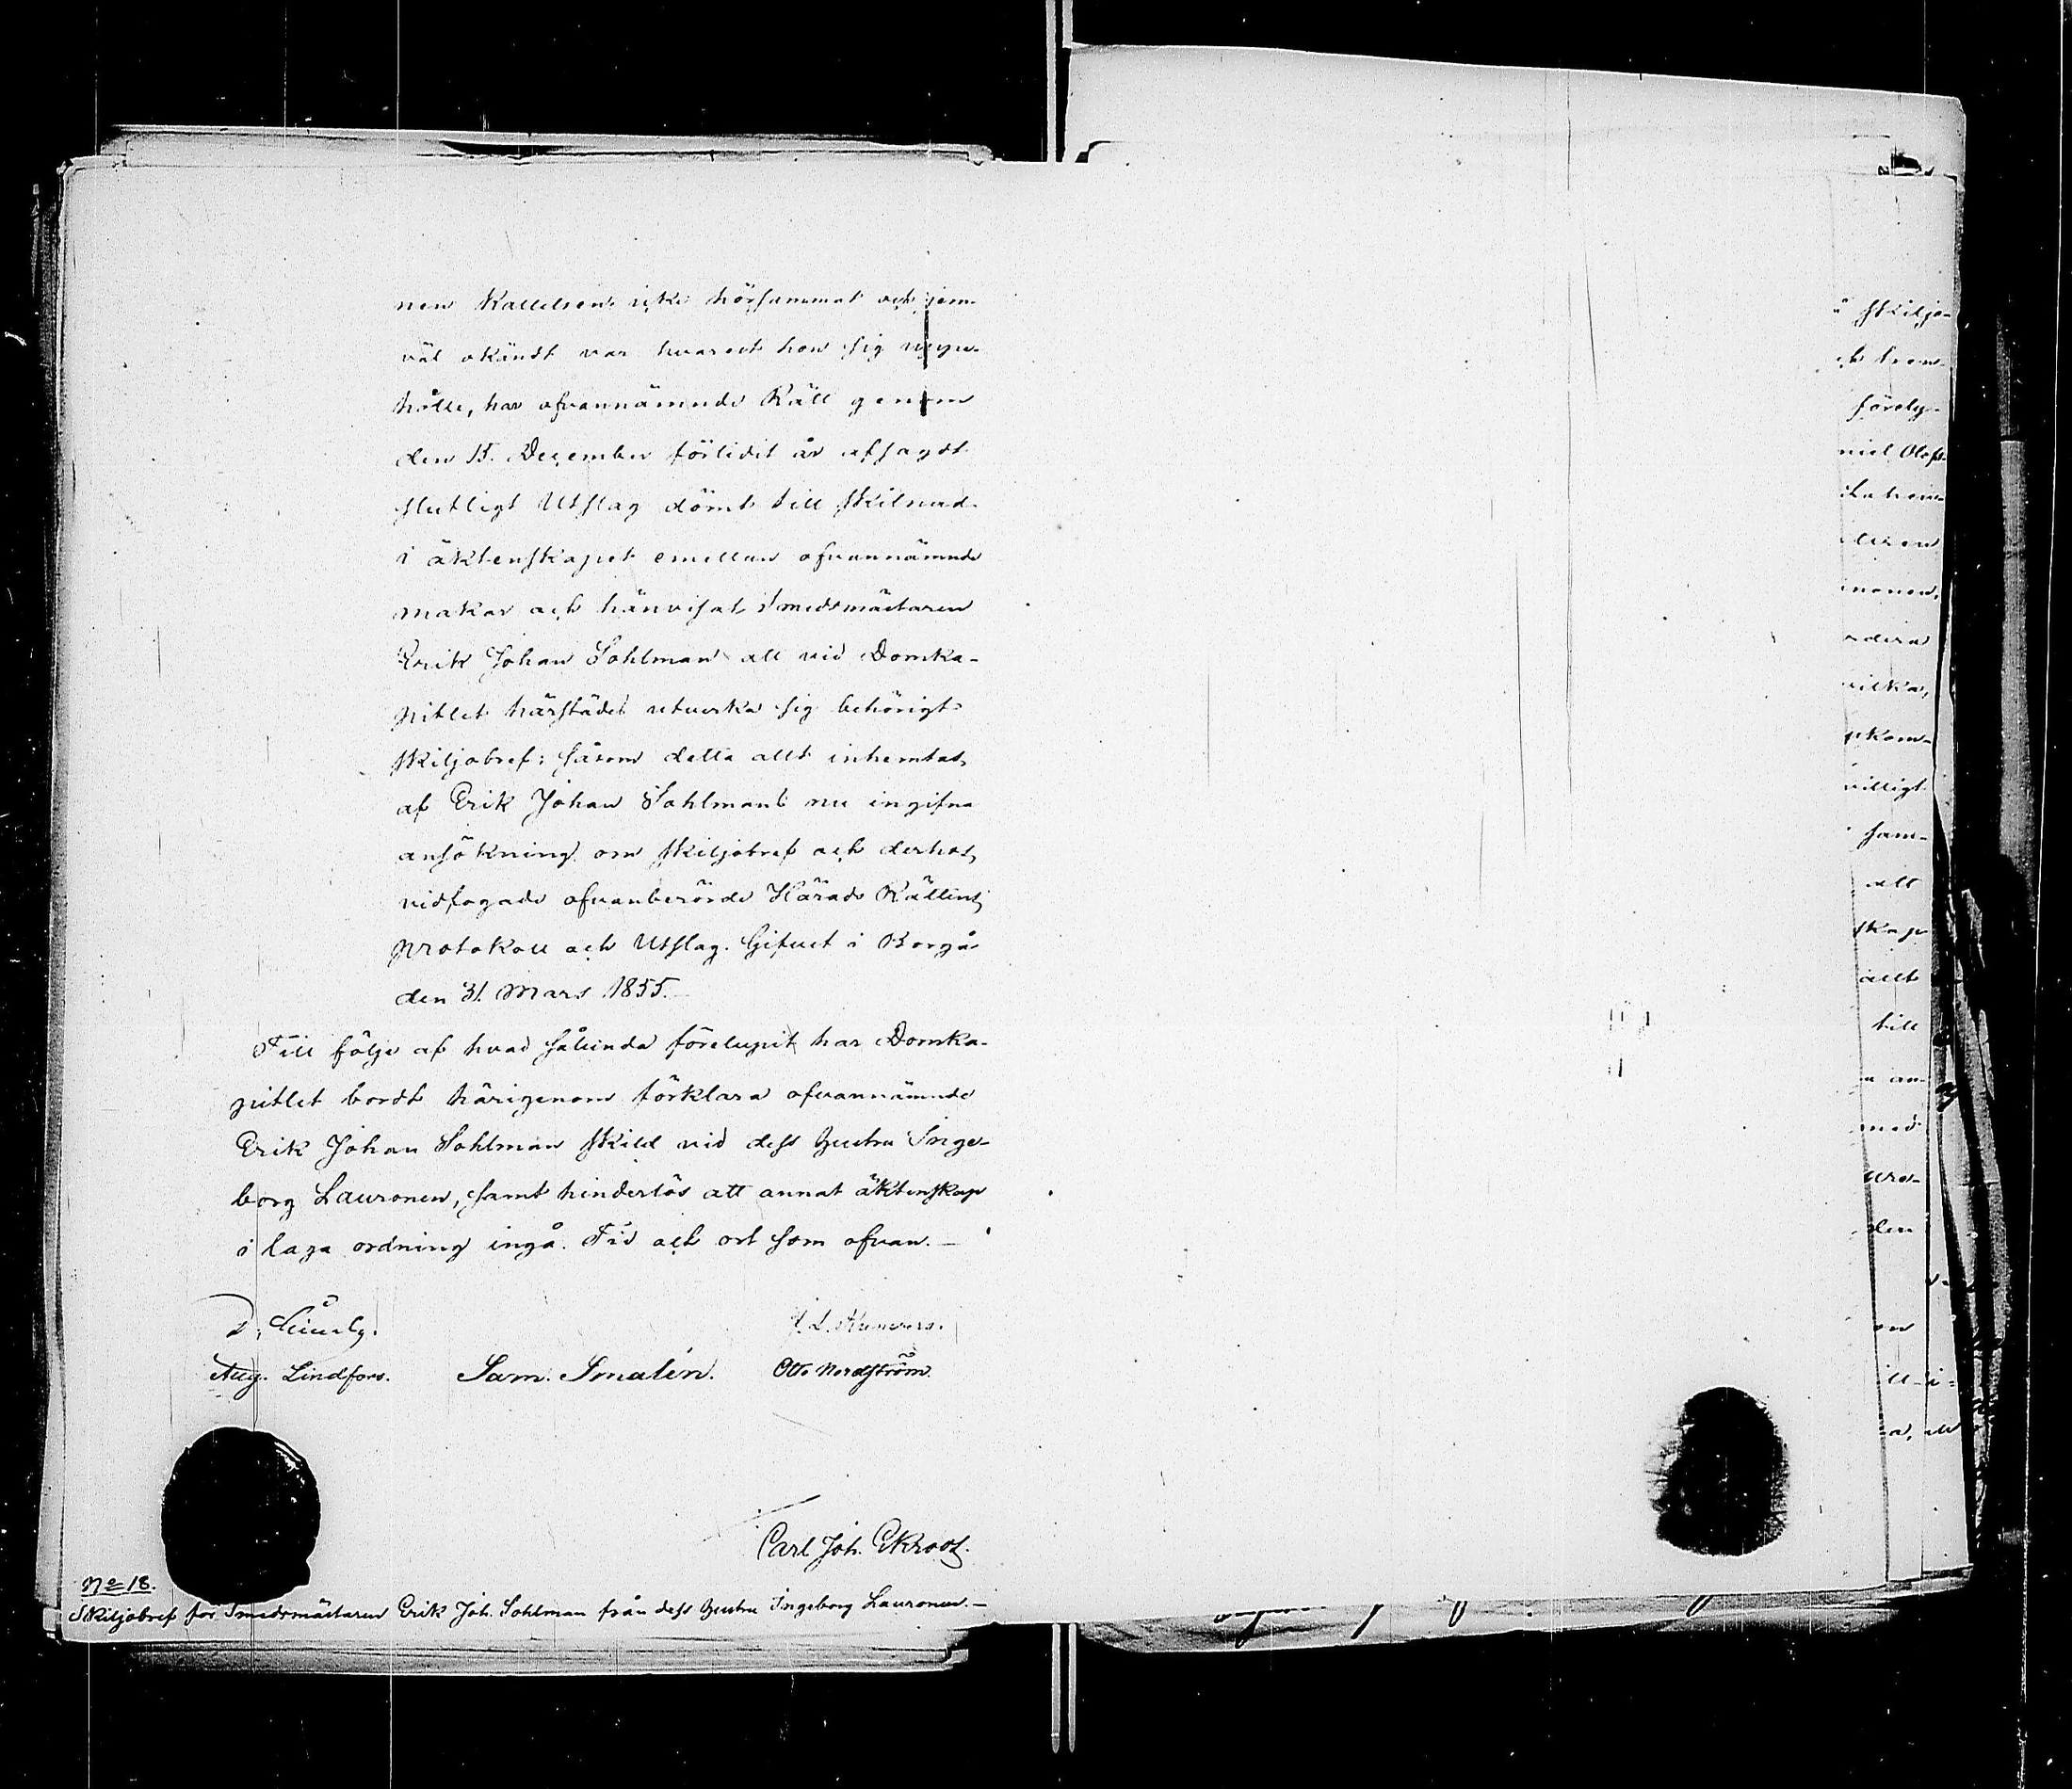 nen Kallelsen icke hörsammat och jem-
väl okändt var hvarest hon sig uppe-
hölle, har ofvannämnde Rätt genom
den 15. December förlidit år afsagdt
slutligt Utslag dömt till skilnad
i äktenskapet emellan ofvannämnde
makar och hänvisat Smedsmästaren
Erik Johan Sohlman att vid Domka-
pitlet härstädes utverka sig behörigt
skiljobref; såsom detta allt inhemtats
af Erik Johan Sohlmans nu ingifna
ansökning om skiljobref och derhos
vidfogade ofvanberörde Härads Rättens
protokoll och Utslag. Gifvet i Borgå
den 31. Mars 1855.
Till följe af hvad sålunda förelupit har Domka-
pitlet bordt härigenom förklara ofvannämnde
Erik Johan Sohlman skild vid dess hustru Inge-
borg Lauronen, samt hinderlös att annat äktenskap
i laga ordning ingå. Tid och ort som ofvan.—
Aug. Lindfors. Sam. Smalén. Otto Nordström.
Carl Joh. Ekroos.
No 18.
Skiljobref för Smedsmästaren Erik Joh. Sohlman från dess hustru Ingeborg Lauronen.—